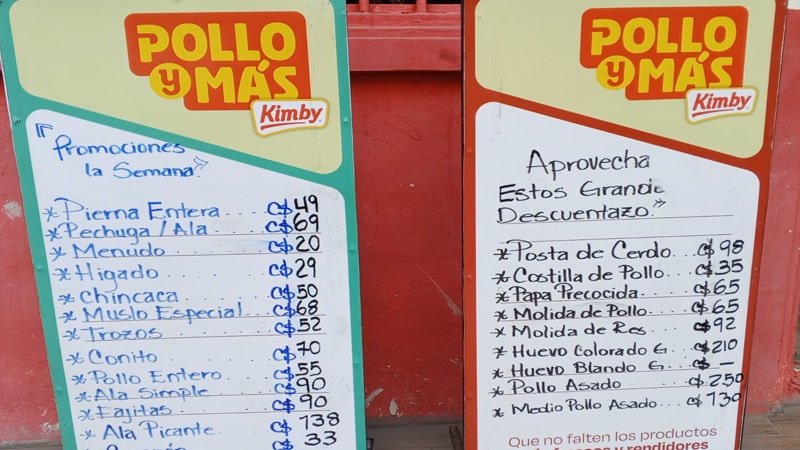 POLLO
y MÁS
Kimby
"Promociones
la Semana"
* Pierna Entera... C$ 49
* Pechuga/Ala... C$ 69
* Menudo... C$ 20
* Higado... C$ 29
* Chincaca... C$ 50
* Muslo Especial... C$ 68
* Trozos... C$ 52
* Conito... C$ 70
* Pollo Entero... C$ 55
* Ala Simple... C$ 90
* Fajitas... C$ 90
* Ala Picante... C$ 138
C$ 33
POLLO
y MÁS
Kimby
Aprovecha
Estos Grande
Descuentazo."
* Posta de Cerdo... C$ 98
* Costilla de Pollo... C$ 35
* Papa Precocida... C$ 65
* Molida de Pollo... C$ 65
* Molida de Res... C$ 92
* Huevo Colorado G... C$ 210
* Huevo Blando G... C$ —
* Pollo Asado... C$ 250
* Medio Pollo Asado... C$ 130
Que no falten los productos
y rendidores